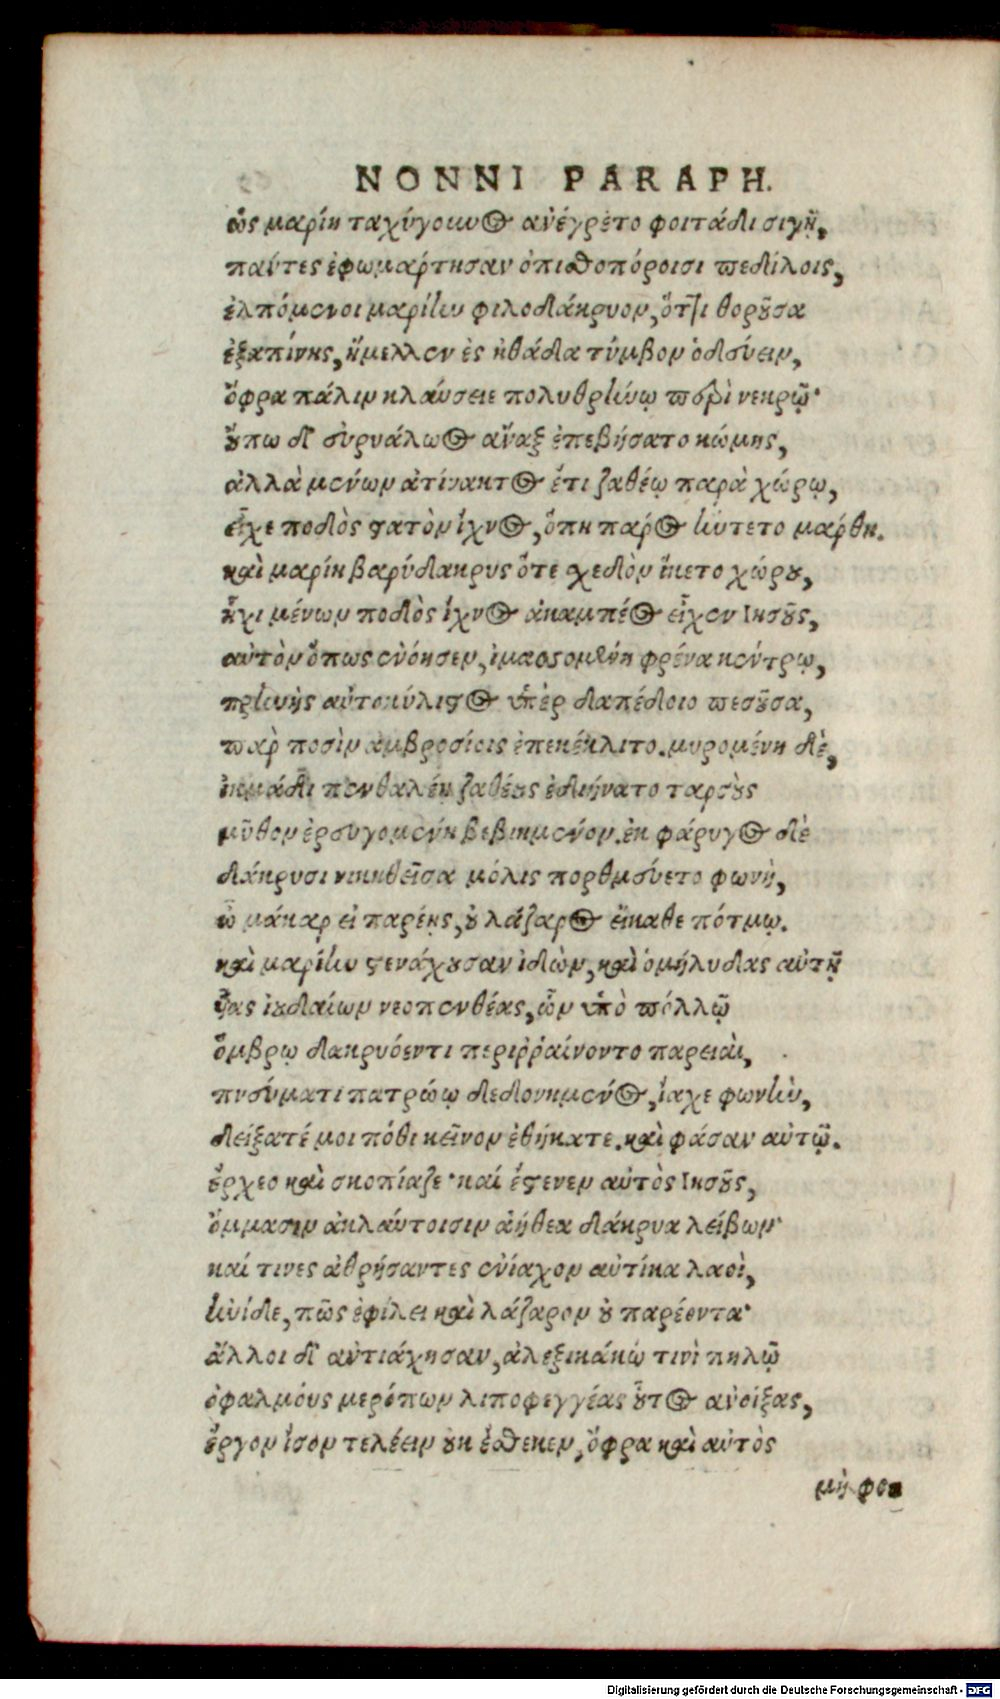 NONNI PARAPH.
ὡς μαρίη ταχύγουνος ἀνέγρετο φοιτάδι σιγῇ,
πάντες ἐφωμάρτησαν ὀπισθοπόροισι πεδίλοις,
ἐλπόμενοι μαρίην φιλοδάκρυον, ὅττι θοροῦσα
ἐξαπίνης, ἤμελλεν ἐς ἠθάδα τύμβον ὁδεύειν,
ὄφρα πάλιν κλαύσειε πολυθρήνῳ περὶ νεκρῷ·
οὔπω δ' εὐρυάλωος ἄναξ ἐπεβήσατο κώμης,
ἀλλὰ μένων ἀτίνακτος ἔτι ζαθέῳ παρὰ χώρῳ,
εἶχε ποδὸς στατὸν ἴχνος, ὅπη πάρος ἤντετο μάρθη.
καὶ μαρίη βαρύδακρυς ὅτε σχεδὸν ἵκετο χώρου,
ἧχι μένων ποδὸς ἴχνος ἀκαμπέος εἶχεν Ιησοῦς,
αὐτὸν ὅπως ἐνόησεν, ἱμασσομένη φρένα κέντρῳ,
πρηνὴς αὐτοκύλιστος ὑπὲρ δαπέδοιο πεσοῦσα,
πὰρ ποσὶν ἀμβροσίοις ἐπεκέκλιτο. μυρομένη δὲ,
ἰκμάδι πενθαλέῃ ζαθέους ἐδιήνατο ταρσοὺς
μῦθον ἐρευγομένη βεβιημένον. ἐκ φάρυγος δὲ
δάκρυσι νικηθεῖσα μόλις πορθμεύετο φωνὴ,
ὦ μάκαρ εἰ παρέης, οὐ λάζαρος εἴκαθε πότμῳ.
καὶ μαρίην στενάχουσαν ἰδὼν, καὶ ὁμήλυδας αὐτῇ
ὗας ἰουδαίων νεοπενθέας, ὧν ὑπὸ πολλῷ
ὄμβρῳ δακρυόεντι περιῤῥαίνοντο παρειαὶ,
πνεύματι πατρώῳ δεδονημένος, ἴαχε φωνὴν,
δείξατέ μοι πόθι κεῖνον ἐθήκατε. καὶ φάσαν αὐτῷ.
ἔρχεο καὶ σκοπίαζε· καί ἔστενεν αὐτὸς Ιησοῦς,
ὄμμασιν ἀκλαύτοισιν ἀήθεα δάκρυα λείβων·
καί τινες ἀθρήσαντες ἐνίαχον αὐτίκα λαοὶ,
ἠνίδε, πῶς ἐφίλει καὶ λάζαρον οὐ παρέοντα·
ἄλλοι δ' ἀντιάχησαν, ἀλεξικάκῳ τινὶ πηλῷ
ὀφαλμούς μερόπων λιποφεγγέας οὗτος ἀνοίξας,
ἔργον ἶσον τελέειν οὐκ ἔσθενεν, ὄφρα καὶ αὐτὸς